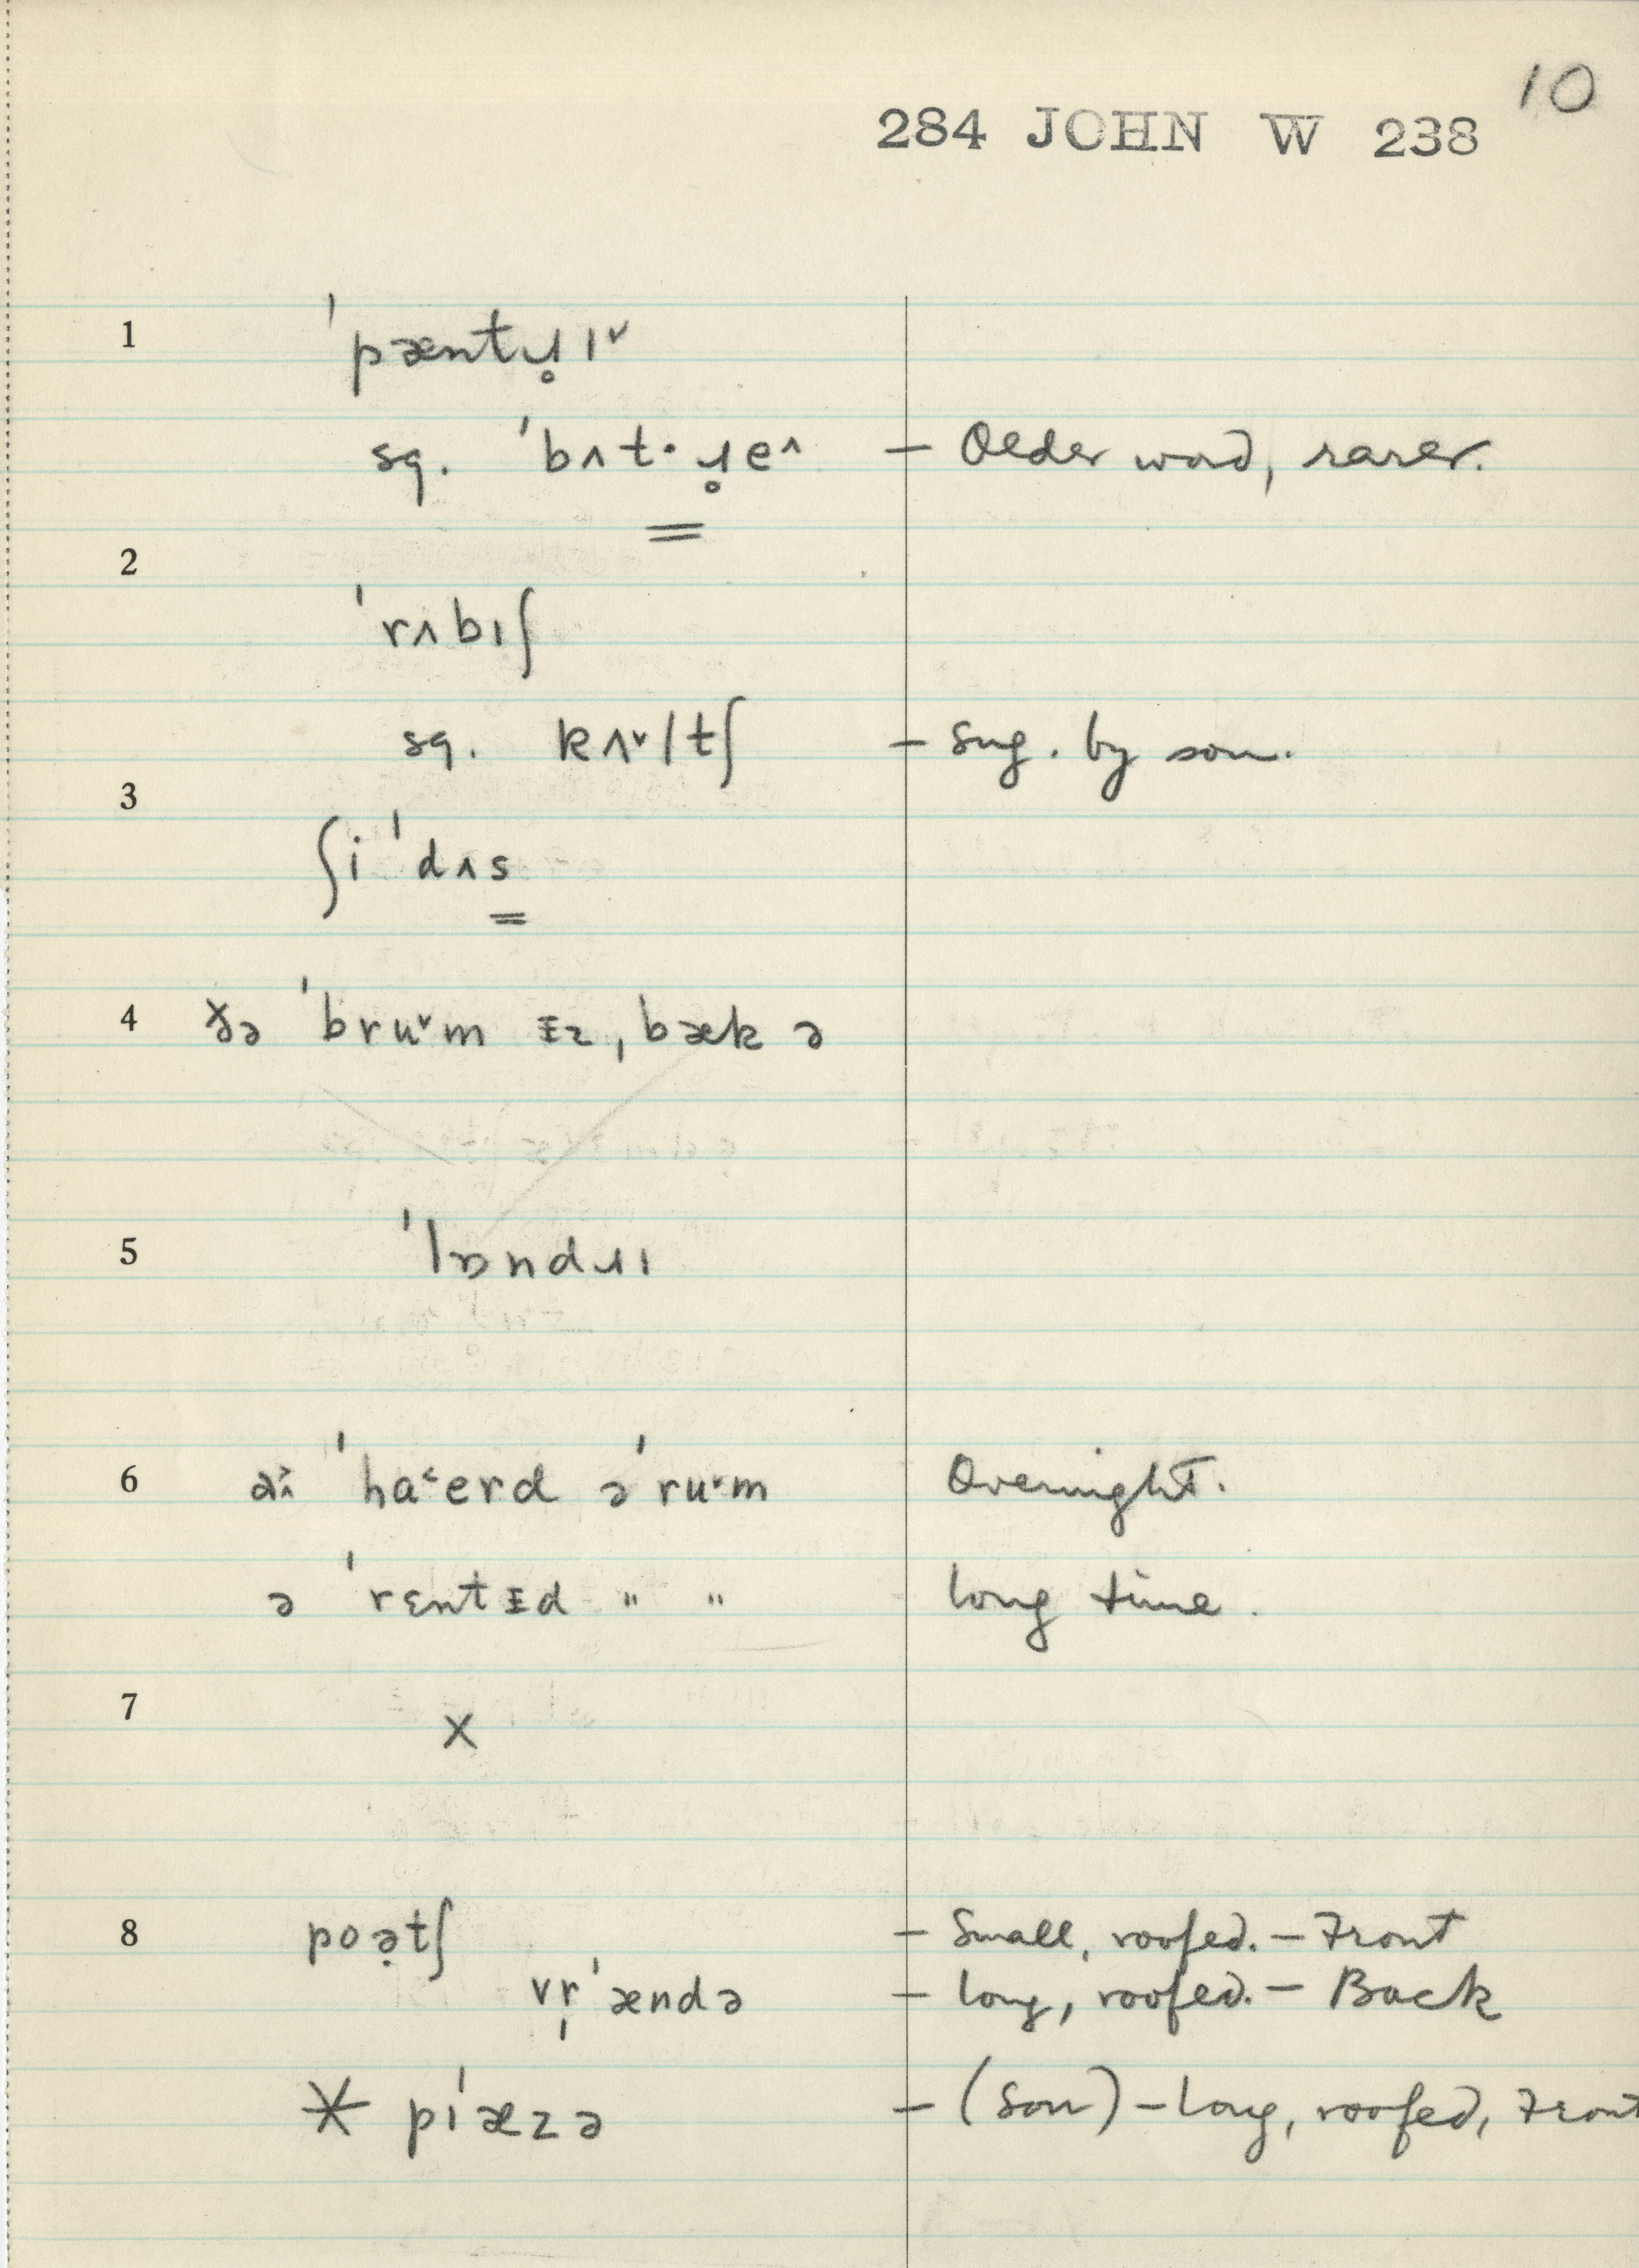 10
284 JOHN W 238
1 ˈpæntɹ̥ɪ˅
sq. ˈbʌt·ɹ̥e^ – Older word, rarer.
2
ˈrʌbɪʃ
sq. kʌ˅ltʃ – Sug. by son.
3
ʃi ˈdʌs
4 ðə ˈbru˅m ɪz ˌbæk ə
5 ˈlɒndɹɪ
6 ˈha˂erd ə ˈru˅m Overnight.
ə ˈrɛntɪd " " long time.
7 X
8 poə̣tʃ – Small, roofed. – Front
vr̩ˈændə – long, roofed. – Back
* pɪˈæzə – (Son) – Long, roofed, Front